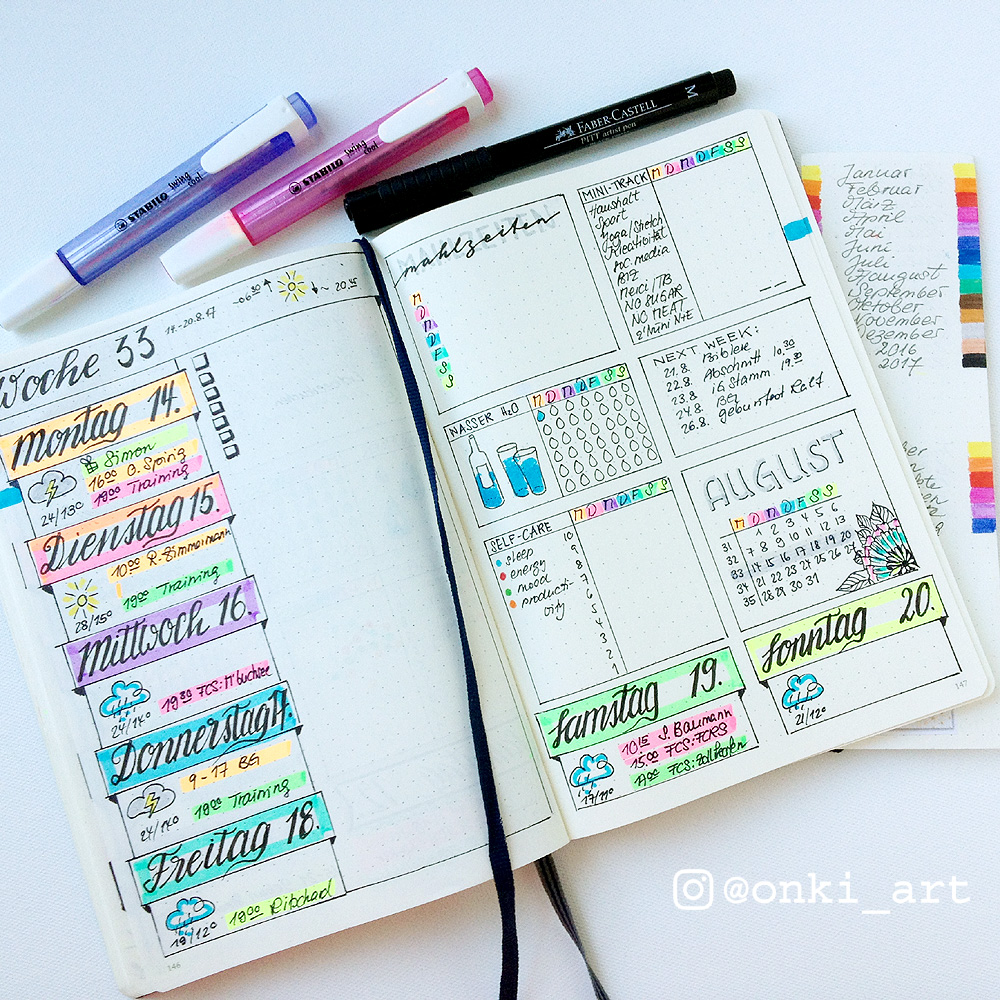 STABILO swing cool
STABILO swing cool
FABER-CASTELL
PITT artist pen
M
Woche 33
14.-20.8.17
~06 30
~ 20 45
Montag 14.
Simon
16 00 O. Spirig
19 00 Training
24/13°
Dienstag 15.
10 00 R. Zimmermann
19 00 Training
28/15°
Mittwoch 16.
19 30 FCS: M'buchsee
24/14°
Donnerstag 17.
9-17 BG
19 00 Training
24/14°
Freitag 18.
19 00
19/12°
146
MAHLZEITEN
mahlzeiten
M
D
M
D
F
S
S
MINI-TRACK
M D M D F S S
Haushalt
Sport
Yoga/Stretch
Kreativität
soc. media
BIZ
Merci/TB
NO SUGAR
NO MEAT
WASSER H2O
M D M D F S S
NEXT WEEK:
21.8. Bibliere
22.8. Abschnitt 10.30
23.8. iG Stamm 19.30
24.8. BG
26.8. geburtstag Ralf
SELF-CARE
M D M D F S S
sleep
energy
mood
producti-
vity
10
9
8
7
6
5
4
3
2
1
AUGUST
M D M D F S S
31 1 2 3 4 5 6
32 7 8 9 10 11 12 13
33 14 15 16 17 18 19 20
34 21 22 23 24 25 26 27
35 28 29 30 31
Samstag 19.
10 15 S. Baumann
15.00 FCS: FCRS
17/11°
Sonntag 20.
21/12°
147
Januar
Februar
März
April
Mai
Juni
Juli
August
September
Oktober
November
Dezember
2016
2017
@onki_art